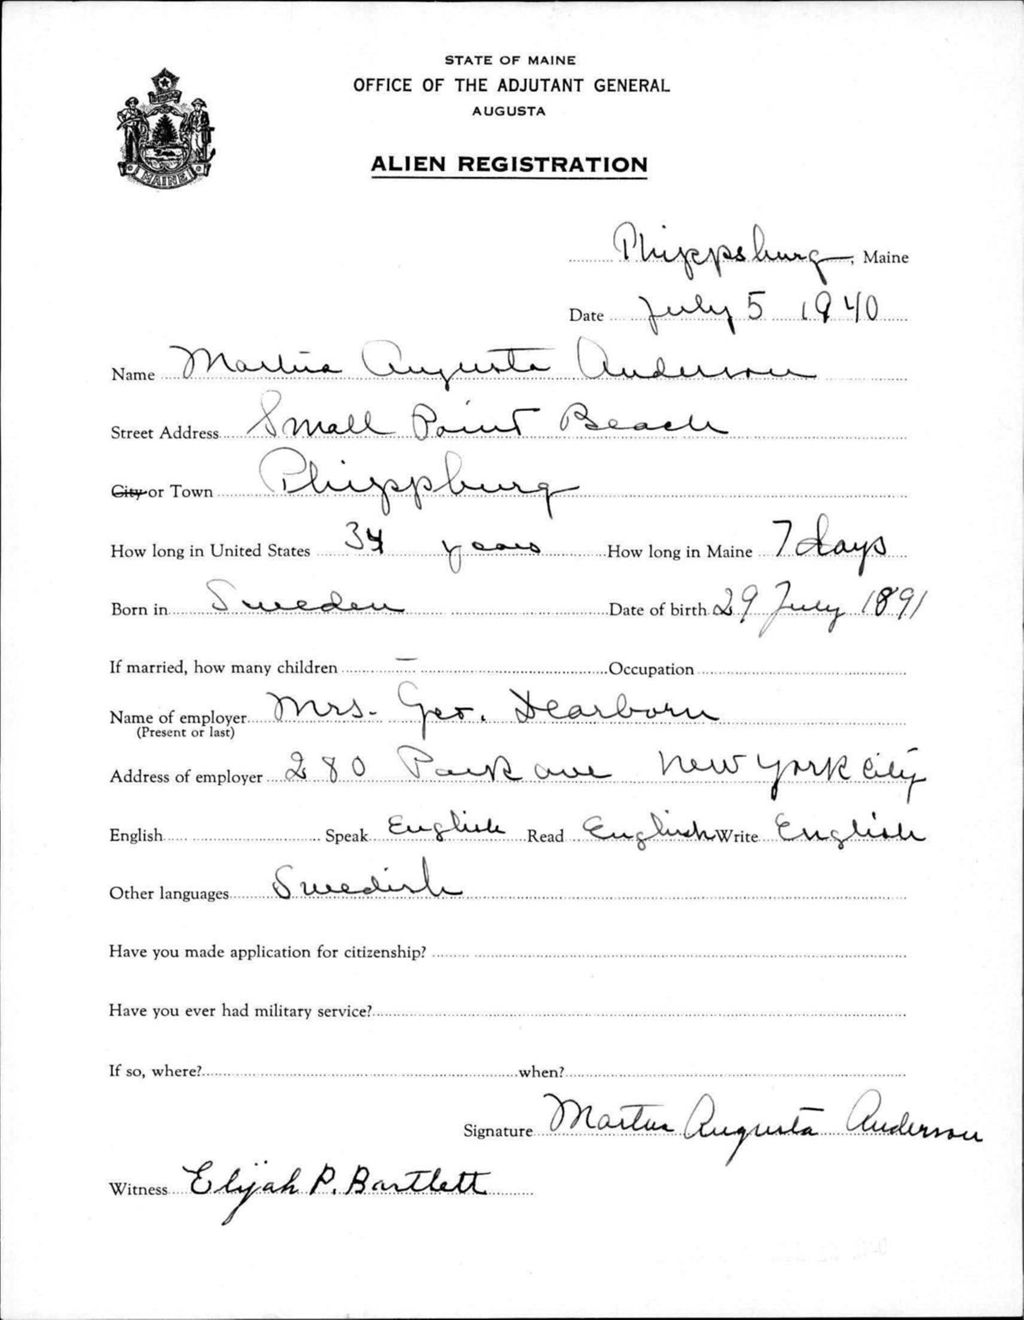 STATE OF MAINE
OFFICE OF THE ADJUTANT GENERAL
AUGUSTA
MAINE
ALIEN REGISTRATION
Phippsburg, Maine
Date July 5 1940
Name Augusta Anderson
Street Address Small Point Beach
City or Town Phippsburg
How long in United States 34 years How long in Maine 7 days
Born in Sweden Date of birth 29 July 1891
If married, how many children — Occupation
Name of employer Mrs. Geo. Dearborn
(Present or last)
Address of employer 280 Park ave New York City
English Speak English Read English Write English
Other languages Swedish
Have you made application for citizenship?
Have you ever had military service?
If so, where? when?
Signature Augusta Anderson
Witness Elijah P. Bartlett